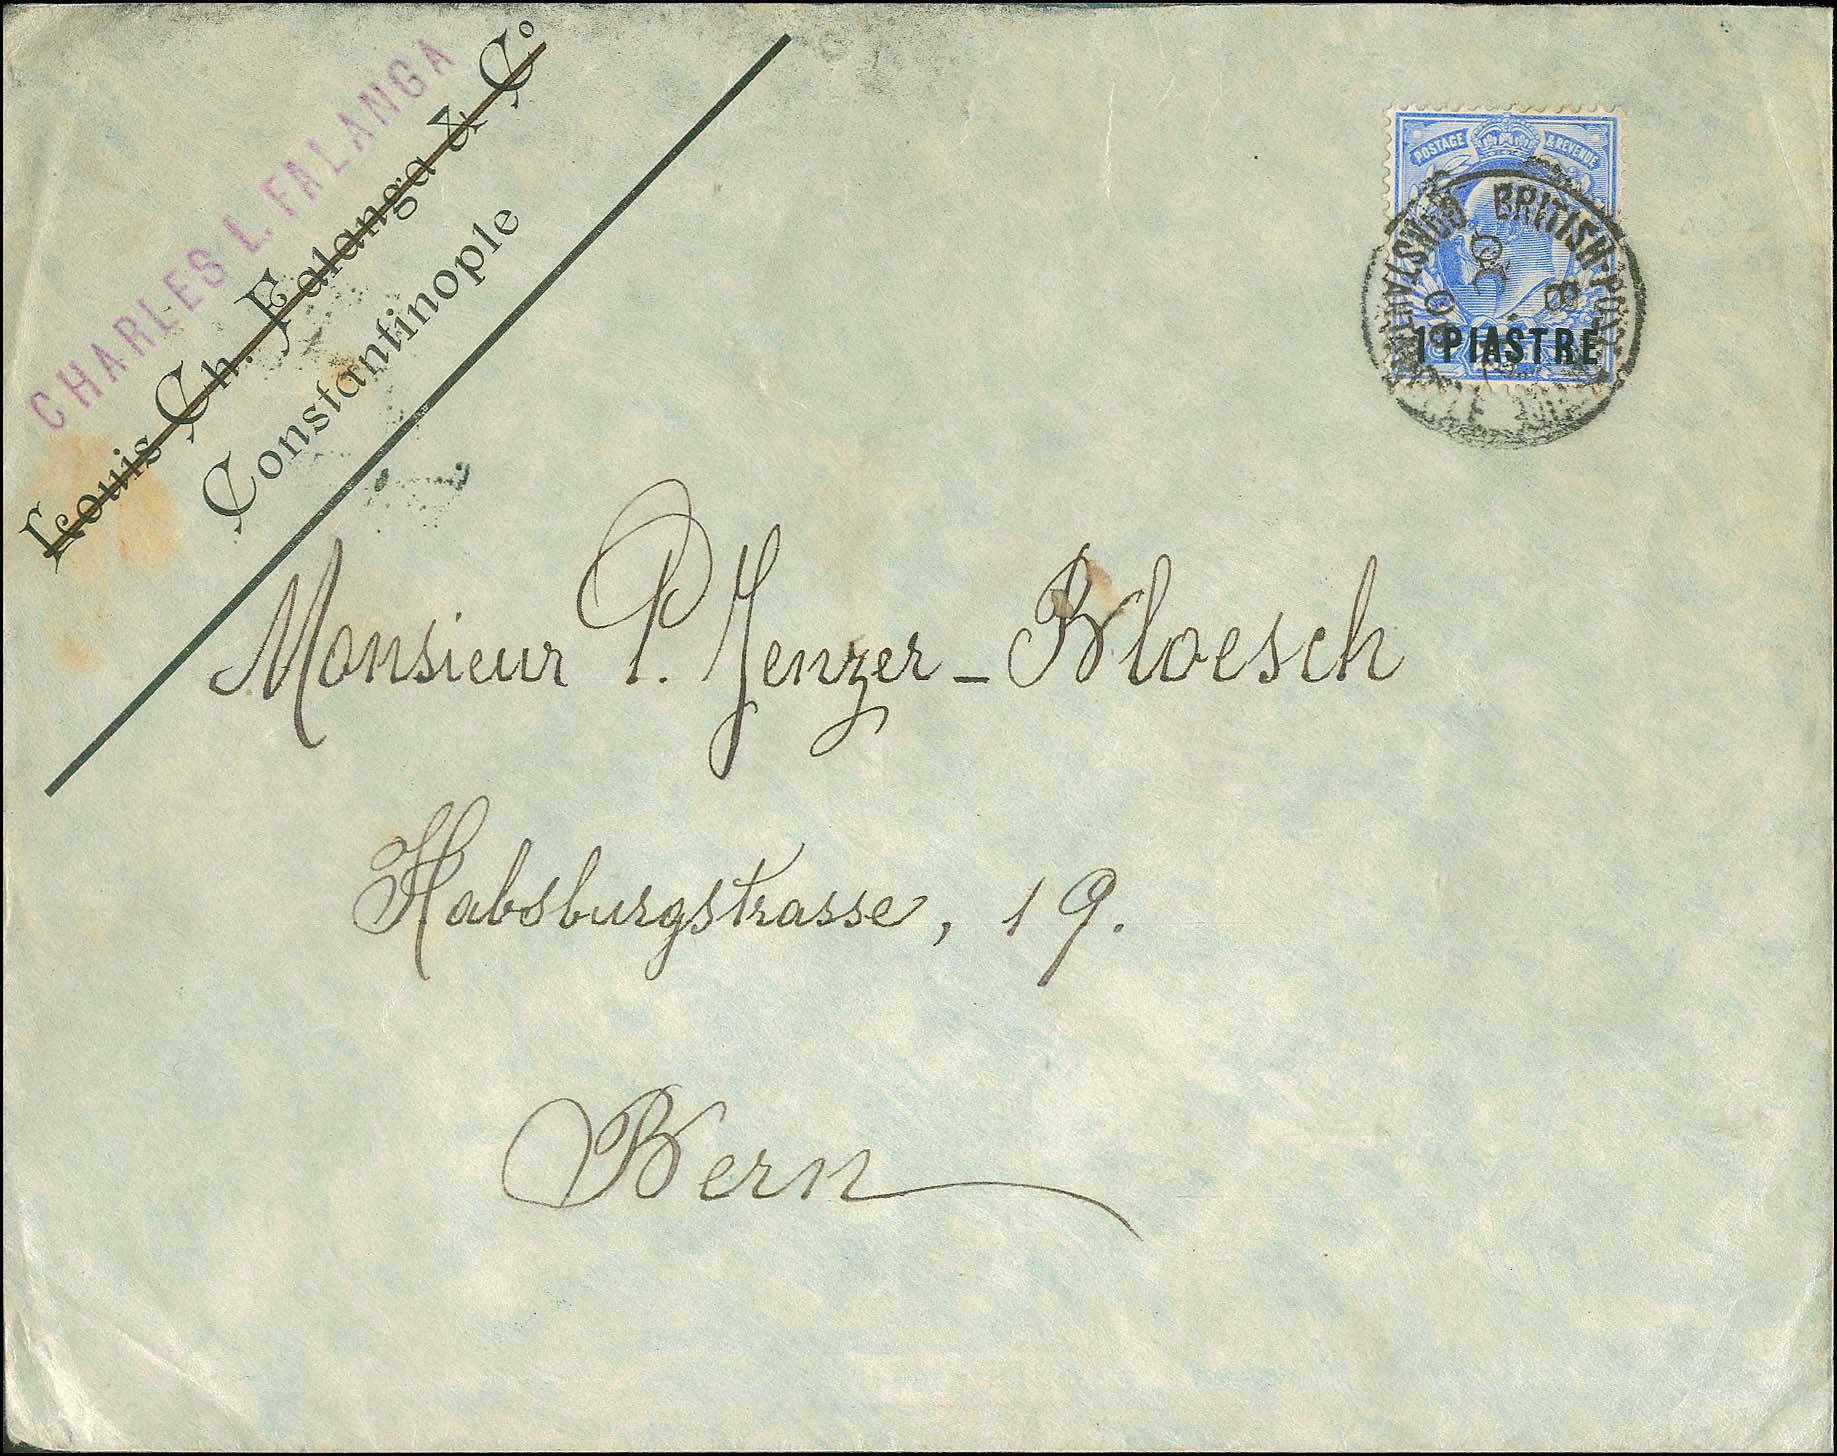 CHARLES L. FALANGA
Louis Ch. Falanga & Co
Constantinople
POSTAGE & REVENUE
1 PIASTRE
BRITISH POST
CONSTANTINOPLE
Monsieur P. Jenzer-Bloesch
Habsburgstrasse, 19.
Bern